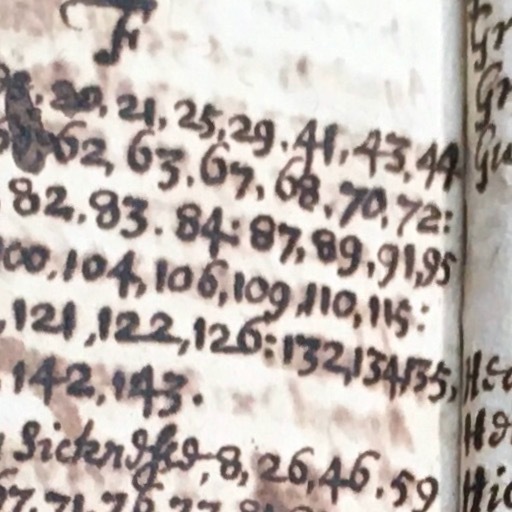 F
20, 21, 25, 29. 41, 43, 44
62, 63. 67, 68. 70, 72:
82. 83. 84: 87, 89, 91, 95
100, 104, 106, 109, 110, 115:
, 121, 122, 126: 132, 134, 135,
142, 143.
8, 26, 46. 59
Gr
Gr
Gu
Hea
Hi